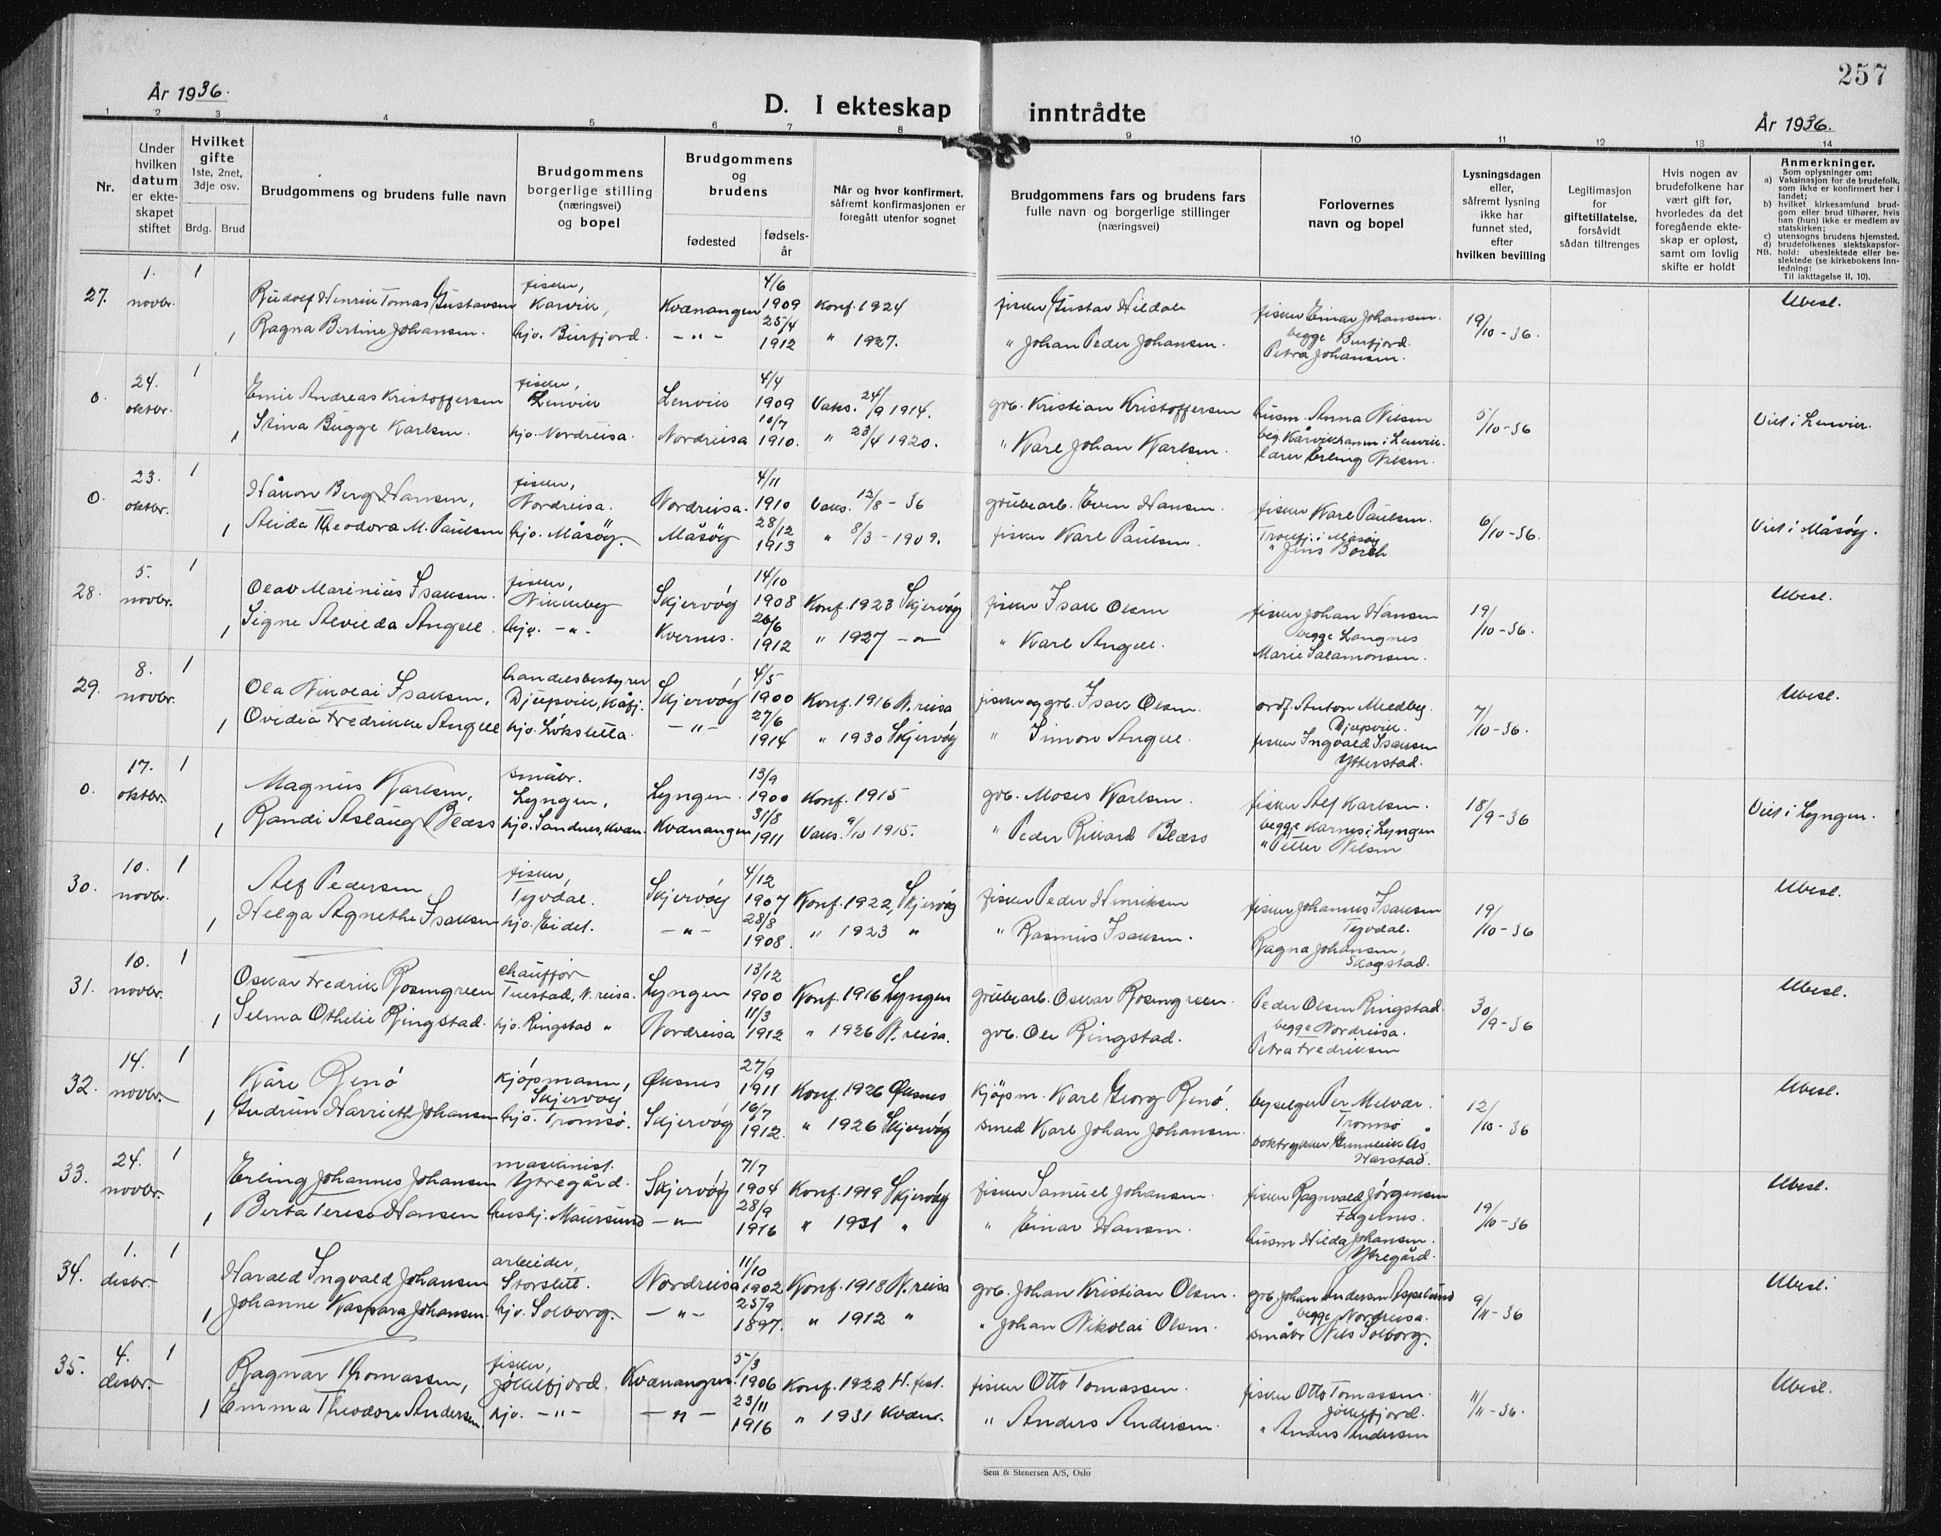 257
År 1936.
År 1936.
D. I ekteskap inntrådte
1 2 3 4 5 6 7 8 9 10 11 12 13 14
Nr.
Under hvilken datum er ekteskapet stiftet
Hvilket gifte 1ste, 2net, 3dje osv.
Brdg. Brud
Brudgommens og brudens fulle navn
Brudgommens borgerlige stilling (næringsvei) og bopel
Brudgommens og brudens
fødested
fødselsår
Når og hvor konfirmert, såfremt konfirmasjonen er foregått utenfor sognet
Brudgommens fars og brudens fars fulle navn og borgerlige stillinger (næringsvei)
Forlovernes navn og bopel
Lysningsdagen eller, såfremt lysning ikke har funnet sted, efter hvilken bevilling
Legitimasjon for giftetillatelse, forsåvidt sådan tiltrenges
Hvis nogen av brudefolkene har vært gift før, hvorledes da det foregående ekteskap er opløst, samt om lovlig skifte er holdt
Anmerkninger.
Som oplysninger om:
a) Vaksinasjon for de brudefolk, som ikke er konfirmert her i landet;
b) hvilket kirkesamfund brudgom eller brud tilhører, hvis han (hun) ikke er medlem av statskirken;
c) utensogns brudens hjemsted.
d) brudefolkenes slektskapsforhold: ubeslektede eller beslektede (se kirkebokens Innledning:
NB. Til iakttagelse II, 10).
27. 1. novbr. 1 Rudolf Henrik Tomas Gustavsen fisker, Karvik, Kvænangen 4/6 1909 Konf. 1924 fisker Gustav Hildal fisker Einar Johansen. 19/10-36. Ubesl.
1 Ragna Bertine Johansen. hjv. Burfjord. -"- 25/4 1912 " 1927. " Johan Peder Johansen. begge Burfjord. Petra Johansen.
0 24. oktbr. 1 Emil Andreas Kristoffersen fisker, Lenvik Lenvik 4/4 1909 Vaks. 24/9 1914. gvb. Kristian Kristoffersen husm. Anna Nilsen 5/10-36 Viet i Lenvik.
1 Stina Bugge Karlsen. hjv. Nordreisa. Nordreisa 10/7 1910. " 23/4 1920. " Karl Johan Karlsen. beg. Kårvikhamn i Lenvik. lærer Erling Nilsen.
0 23. oktbr. 1 Håkon Berg Hansen, fisker, Nordreisa. Nordreisa. 4/11 1910 Vaks. 12/8-36 grubearb. Even Hansen. fisker Karl Paulsen. 6/10-36. Viet i Måsøy.
1 Alida Theodora M. Paulsen hjv. Måsöy. Måsöy 28/12 1913 " 8/3-1909. fisker Karl Paulsen. Trollfj. i Måsøy " Jens Borch
28. 5. novbr. 1 Olav Marinius Isaksen. fisker, Nikkeby Skjervöy 14/10 1908 Konf. 1923 Skjervöy fisker Isak Olsen fisker Johan Hansen 19/10-36. Ubesl.
1 Signe Alvilda Angell. hjv. -"- Kvernes. 26/6 1912 " 1927 -"- " Karl Angell. begge Langnes Marie Salamonsen.
29. 8. novbr. 1 Ola Nikolai Isaksen, handelsbestyrer Djupvik, Kåfj. Skjervöy 4/5 1900 Konf. 1916 N.reisa fisker og gvb. Isak Olsen. ordf. Anton Medby. 7/10-36. Ubesl.
1 Ovidia Fredrikke Angell hjv. Lökslætta. -"- 27/6 1914 " 1930 Skjervöy " Simon Angell. Djupvik. fisker Ingvald Isaksen Ytterstad.
0. 17. oktbr. 1 Magnus Karlsen, småbr. Lyngen, Lyngen. 13/9 1900 Konf. 1915 gvb. Moses Karlsen. fisker Alf Karlsen. 18/9-36 Viet i Lyngen.
1 Randi Aslaug Blæss hjv. Sandnes, Kvæn. Kvænangen 31/8 1911 Vaks. 9/10 1915. " Peder Rikard Blæss begge Karnes i Lyngen " Petter Nilsen
30. 10. novbr. 1 Alf Pedersen fisker, Tyvdal. Skjervöy 4/12 1907 Konf. 1922, Skjervöy fisker Peder Henriksen fisker Johannes Isaksen 19/10-36 Ubesl.
1 Helga Agnethe Isaksen hjv. Eidet. -"- 28/8 1908. " 1923 " " Rasmus Isaksen. Tyvdal. Ragna Johansen, Skogstad.
31. 10. novbr. 1 Oskar Fredrik Rosengreen chauffør N.reisa. Lyngen 13/12 1900 Konf. 1916 Lyngen grubearb. Oskar Rosengreen. Peder Olsen Ringstad 30/9-36 Ubesl.
1 Selma Othelie Ringstad. hjv. Ringstad " Nordreisa 11/3 1912 " 1926 N.reisa. gvb. Ole Ringstad. begge Nordreisa. Petra Fredriksen
32. 14. novbr. 1 Kåre Renö kjöpmann, Skjervöy Öksnes 27/9 1911 Konf. 1926 Öksnes kjöpm. Karl Georg Renö. byselger Per Melvær. 12/10-36 Ubesl.
1 Gudrun Harrieth Johansen hjv. Tromsö. Skjervöy 16/7 1912. " 1926 Skjervöy smed Karl Johan Johansen. Tromsö boktrykker Gunnerik Ås Harstad.
33. 24. novbr. 1 Erling Johannes Johansen maskinist. Ytregård. Skjervöy 7/7 1904 Konf. 1919 Skjervöy fisker Samuel Johansen. fisker Ragnvald Jørgensen 19/10-36 Ubesl.
1 Berta Terese Hansen hushj. Maursund -"- 28/9 1916 " 1931 " " Einar Hansen. Fagernes. husm Hilda Johansen. Ytregård.
34. 1. desbr. 1 Harald Ingvald Johansen arbeider, Storslett. Nordreisa 11/10 1902 Konf. 1918 N.reisa gvb. Johan Kristian Olsen. gvb Johan Andersen Aspelund 9/11-36 Ubesl.
1 Johanne Kaspara Johansen. hjv. Solborg. -"- 25/9 1897. " 1912 " " Johan Nikolai Olsen. begge Nordreisa. småbr Nils Solborg.
35. 4. desbr. 1 Ragnar Thomassen, fisker, Jökelfjord. Kvænangen. 5/3 1906 Konf. 1922 H.fest. fisker Otto Tomassen. fisker Otto Tomassen. 11/11-36. Ubesl.
1 Emma Theodore Andersen hjv. -"- -"- 23/11 1916 " 1931 Kvæn. " Anders Andersen. Jökelfjord. " Anders Andersen
Sem & Stenersen A/S, Oslo